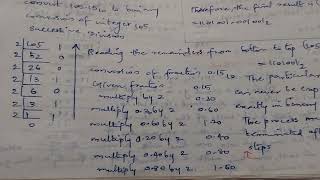 convert 105.15₁₀ to binary
conversion of integer 105
Successive Division
2 | 105 1
2 | 52 0
2 | 26 0
2 | 13 1
2 | 6 0
2 | 3 1
2 | 1 1
0
Reading the remainders from bottom to top (105
= 1101001
conversion of fraction 0.15₁₀
Given fraction 0.15
multiply by 2 0.30
multiply 0.30 by 2 0.60
multiply 0.60 by 2 1.20
multiply 0.20 by 2 0.40
multiply 0.40 by 2 0.80
multiply 0.80 by 2 1.60
Therefore, the final result is
= 1101001.001001₂
The particular
can never be exp
exactly in binary
The process
terminated after
steps